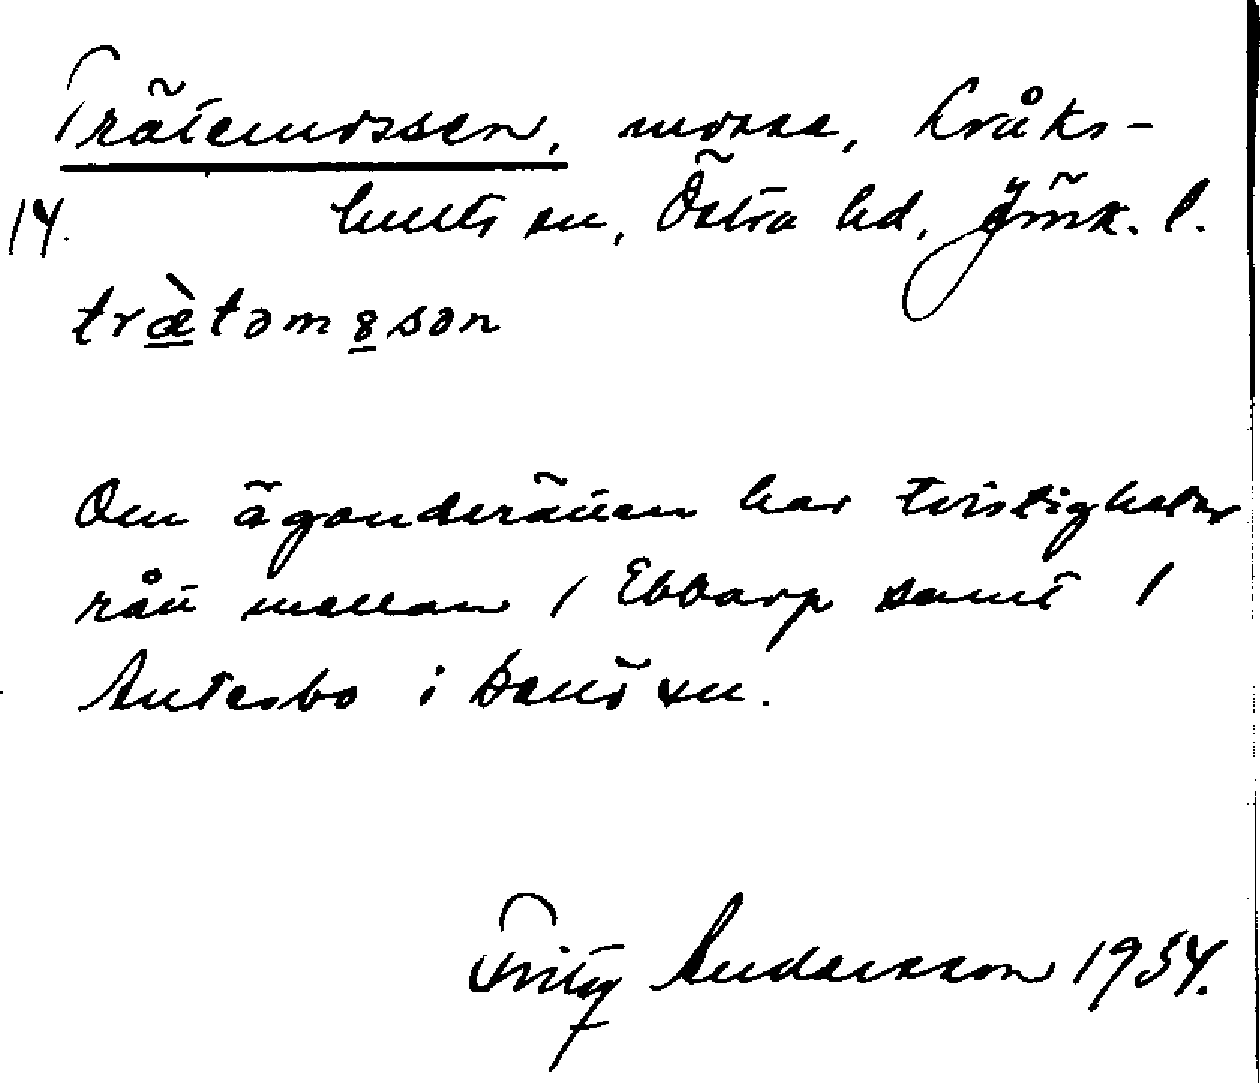 Trätemossen, mosse, Kråks-
14. hults sn, Östra hd, Jönk. l.
træ̀təm8sən
Om äganderätten har tvistigheter
rått mellan / Ebbarp samt /
Antesbo i samma sn.
Fritz Andersson 1934.